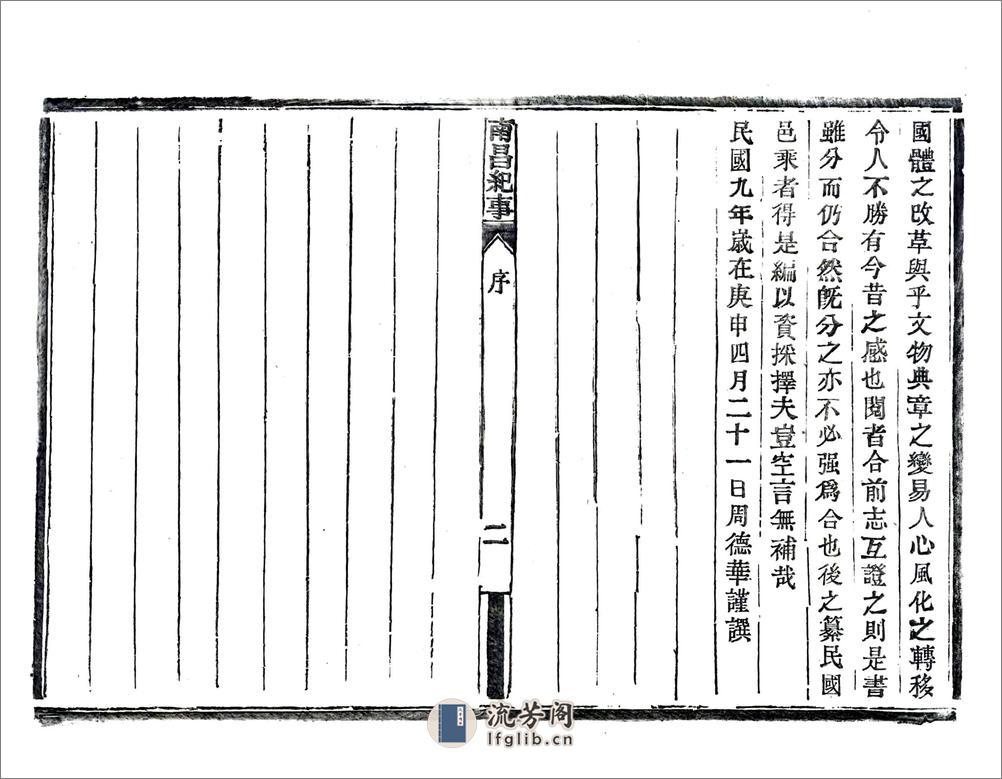 國體之改革與乎文物典章之變易人心風化之轉移
令人不勝有今昔之感也閱者合前志互證之則是書
雖分而仍合然旣分之亦不必强爲合也後之纂民國
邑乘者得是編以資採擇夫豈空言無補哉
民國九年歲在庚申四月二十一日周德華謹譔
南昌紀事
序
二
流芳阁
lfglib.cn